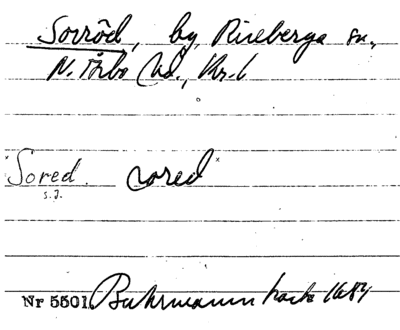 Sorröd, by, Riseberga sn.,
N. Åsbo hd., Kr. l
"Sored. cored"
s.z.
Nr 5501. Buhrmann karta 1684